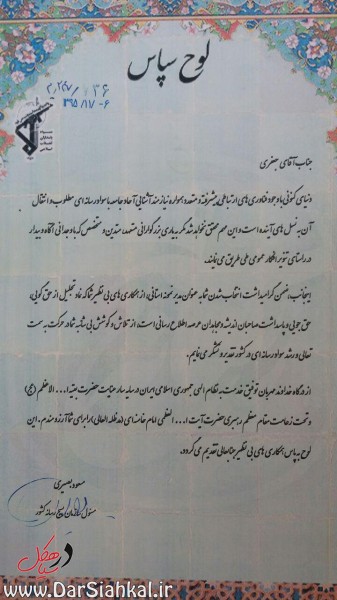 لوح سپاس
۱۳۹۵/۱۲/۰۶
سپاه
پاسداران
انقلاب
اسلامی
جناب آقای جعفری
دنیای کنونی با وجود فناوری های ارتباطی پیشرفته و متعدد همواره نیازمند آشنایی آحاد جامعه با سواد رسانه ای مطلوب و انتقال
آن به نسل های آینده است و این مهم محقق نخواهد شد مگر به یاری بزرگوارانی متعهد، متدین و متخصص که با وجدانی آگاه و بیدار
در راستای تنویر افکار عمومی طی طریق می نمایند.
اینجانب، ضمن گرامیداشت انتخاب شدن شما به عنوان مدیر نمونه استانی، از همکاری های بی نظیر شما که نماد تجلیل از حق گویی،
حق جویی و پاسداشت صاحبان اندیشه و مجاهدان عرصه اطلاع رسانی است، از تلاش و کوشش بی شائبه شما در حرکت به سمت
تعالی و رشد سواد رسانه ای در کشور تقدیر و تشکر می نمایم.
از درگاه خداوند مهربان توفیق خدمت به نظام الهی جمهوری اسلامی ایران در سایه سار عنایت حضرت بقیه ا... الاعظم (عج)
و تحت زعامت مقام معظم رهبری حضرت آیت ا... العظمی امام خامنه ای (مدظله العالی) را برای شما آرزومندم. این
لوح به پاس همکاری های بی نظیر جنابعالی تقدیم می گردد.
مسعود بصیری
مسئول سازمان بسیج رسانه کشور
در سیاهکل
www.DarSiahkal.ir